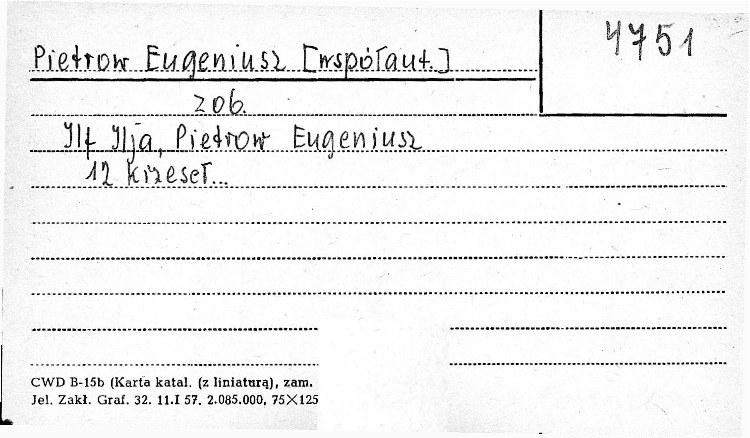 4751
Pietrow Eugeniusz [współaut.]
zob.
Ilf Ilja, Pietrow Eugeniusz
12 krzeseł...
CWD B-15b (Karta katal. (z liniaturą), zam.
Jel. Zakł. Graf. 32. 11.I 57. 2.085.000, 75×125